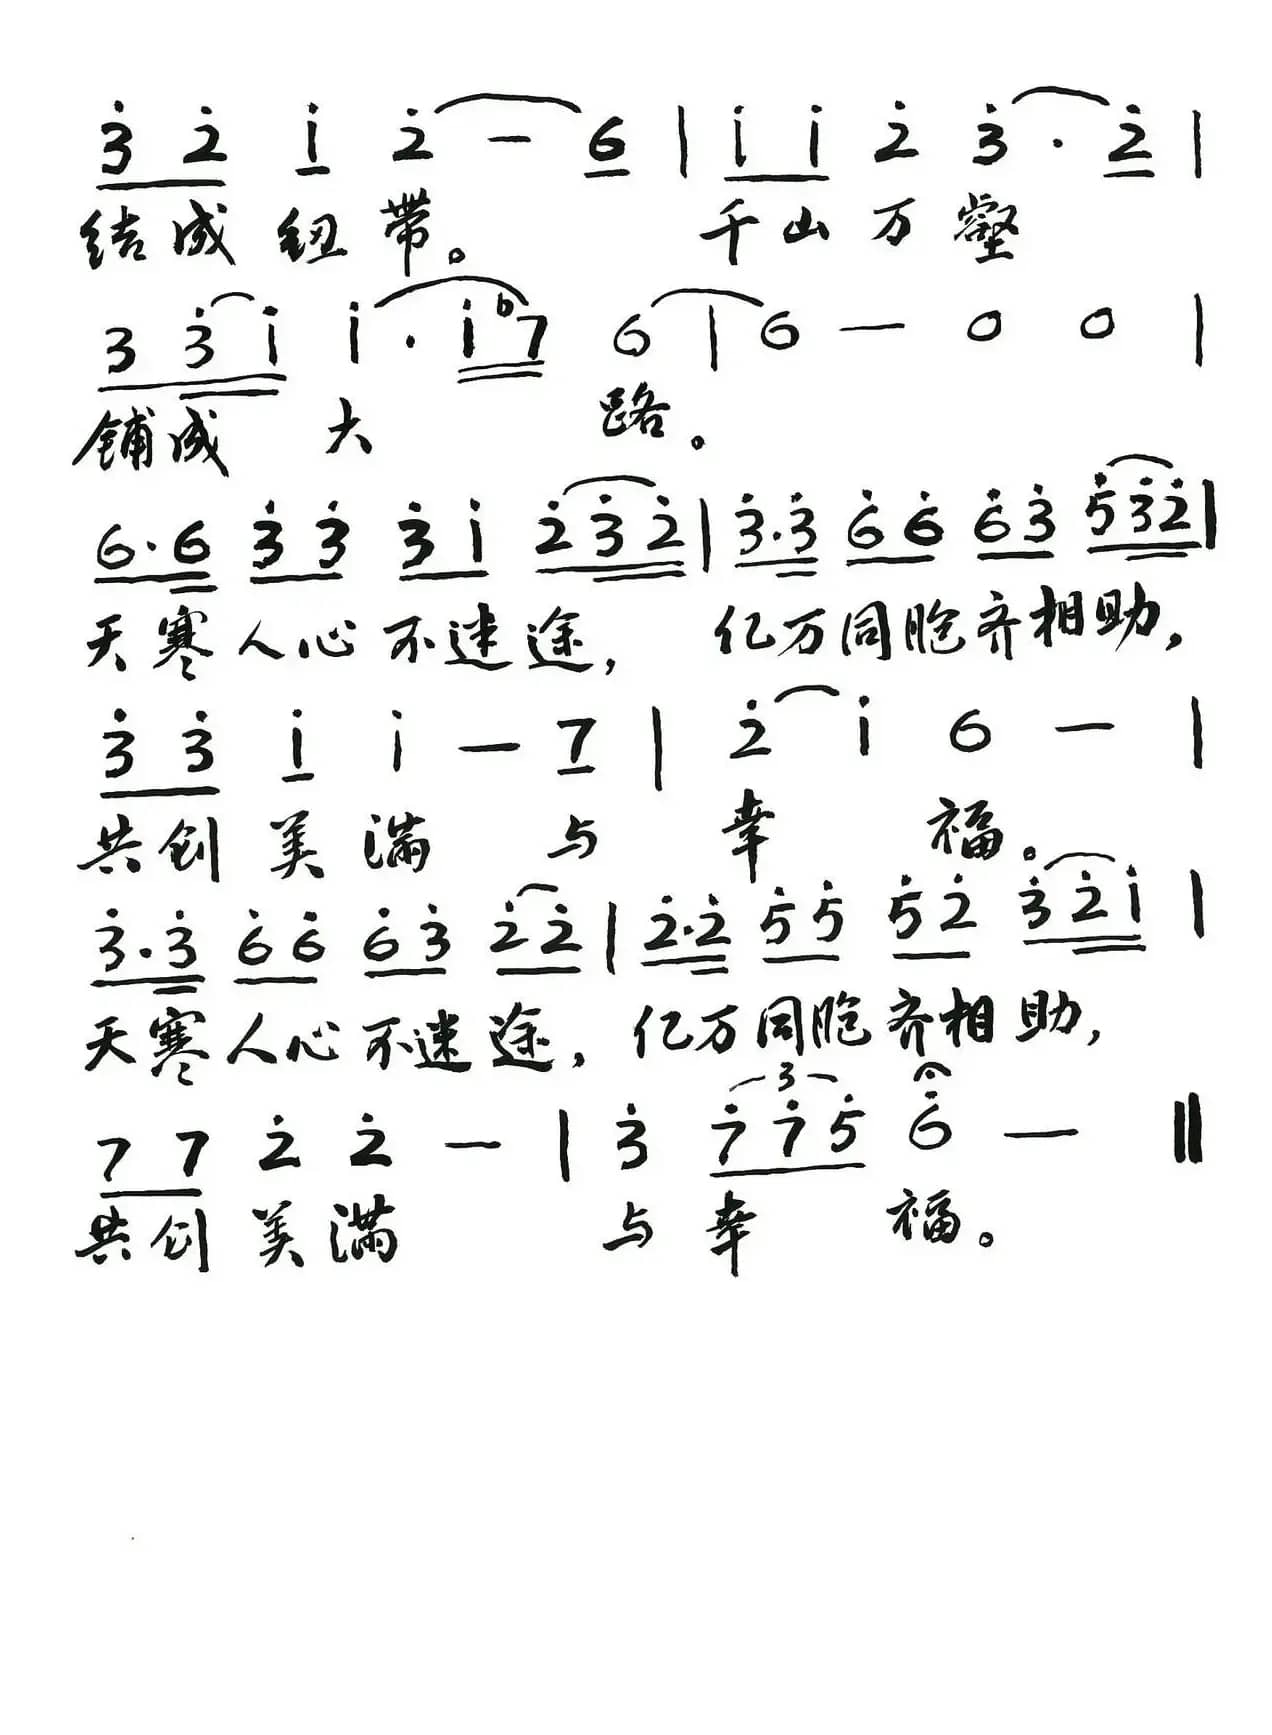 3̇ 2̇ 1̇ 2̇ — 6 | 1̇ 1̇ 2̇ 3̇ · 2̇ |
结成纽带。 千山万壑
3 3̇ 1̇ 1̇ · 1̇ ♭7 6 | 6 — 0 0 |
铺成大路。
6 · 6 3̇ 3̇ 3̇ 1̇ 2̇ 3̇ 2̇ | 3̇ · 3̇ 6̇ 6̇ 6̇ 3̇ 5̇ 3̇ 2̇ |
天寒人心不迷途, 亿万同胞齐相助,
3̇ 3̇ 1̇ 1̇ — 7 | 2̇ 1̇ 6 — |
共创美满与幸福。
3̇ · 3̇ 6̇ 6̇ 6̇ 3̇ 2̇ 2̇ | 2̇ · 2̇ 5̇ 5̇ 5̇ 2̇ 3̇ 2̇ 1̇ |
天寒人心不迷途, 亿万同胞齐相助,
3
7 7 2̇ 2̇ — | 3̇ 7̇ 7̇ 5̇ 6̇ — ‖
共创美满与幸福。